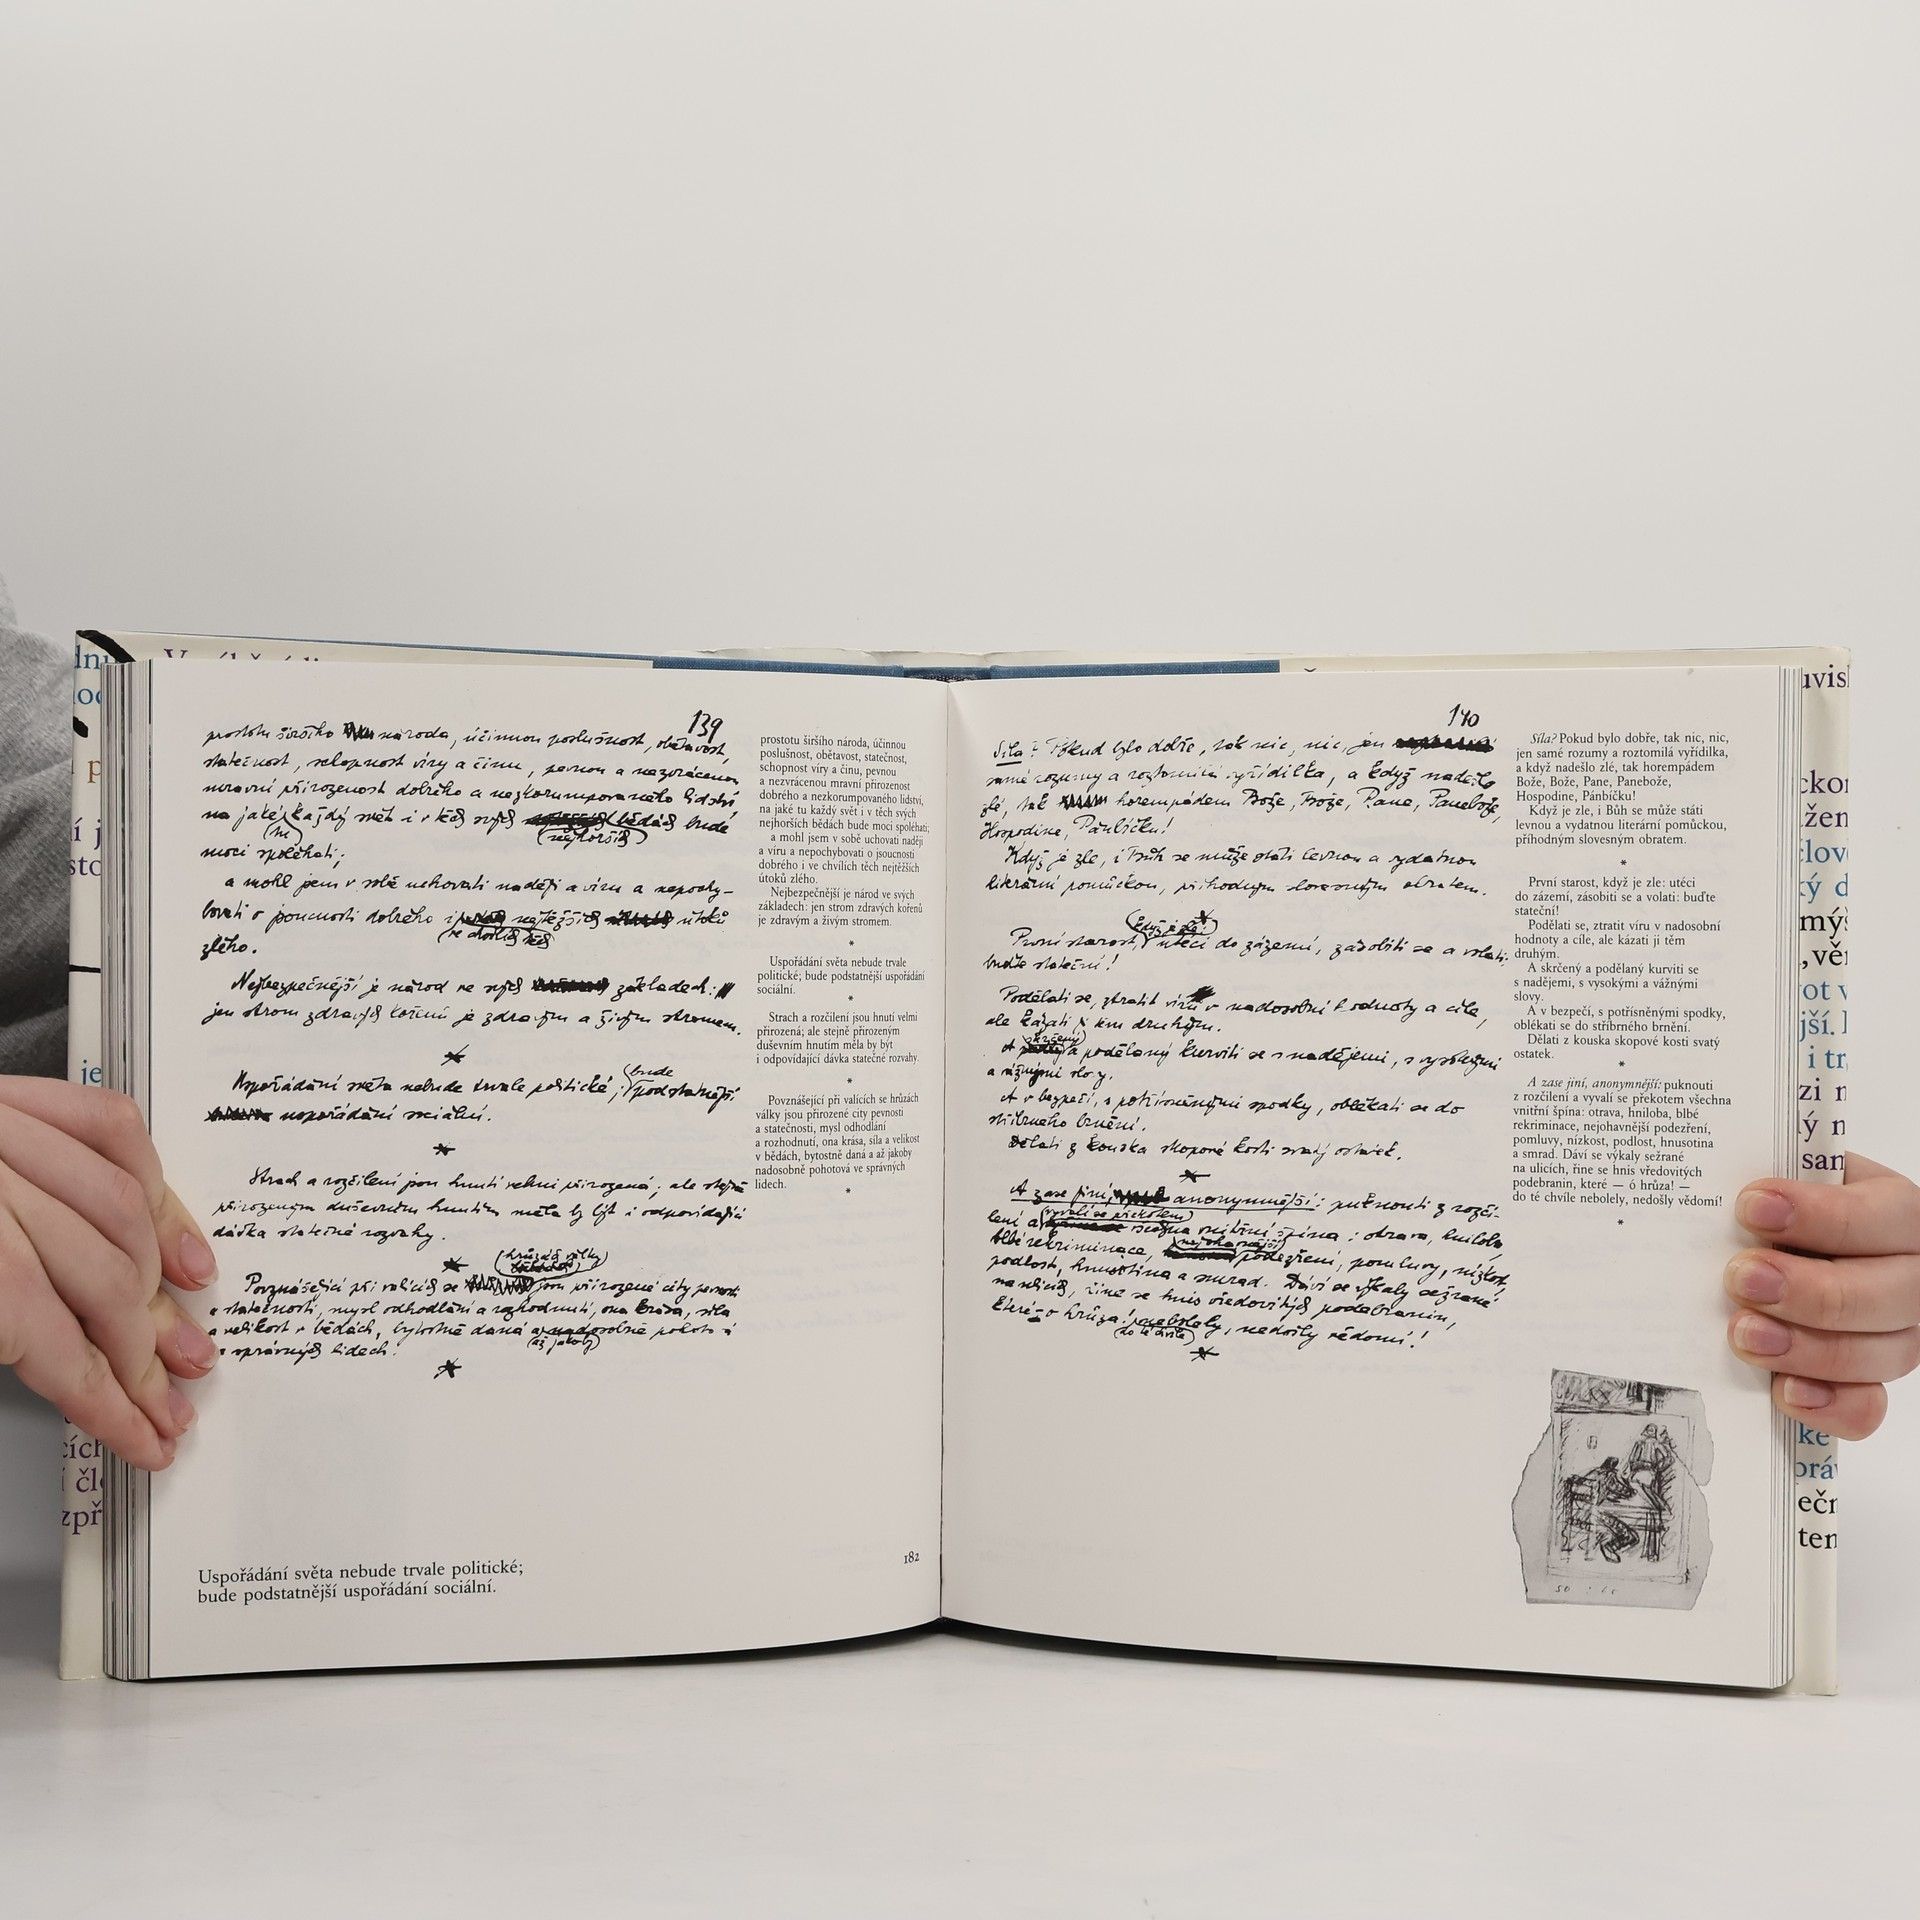 139
prostotu širšího národa, účinnou poslušnost, obětavost,
statečnost, schopnost víry a činu, pevnou a nezvrácenou
mravní přirozenost dobrého a nezkorumpovaného lidství,
na jaké tu každý svět i v těch svých nejhorších bědách bude
moci spoléhati;
a mohl jsem v sobě uchovati naději a víru a nepochy-
bovati o jsoucnosti dobrého i ve chvílích těch nejtěžších útoků
zlého.
Nejbezpečnější je národ ve svých základech:
jen strom zdravých kořenů je zdravým a živým stromem.
*
Uspořádání světa nebude trvale politické; bude podstatnější
uspořádání sociální.
*
Strach a rozčilení jsou hnutí velmi přirozená; ale stejně
přirozeným duševním hnutím měla by být i odpovídající
dávka statečné rozvahy.
*
Povznášející při valících se hrůzách války jsou přirozené city pevnosti
a statečnosti, mysl odhodlání a rozhodnutí, ona krása, síla
a velikost v bědách, bytostně daná a až jakoby nadosobně pohotová
v správných lidech.
*
prostotu širšího národa, účinnou
poslušnost, obětavost, statečnost,
schopnost víry a činu, pevnou
a nezvrácenou mravní přirozenost
dobrého a nezkorumpovaného lidství,
na jaké tu každý svět i v těch svých
nejhorších bědách bude moci spoléhati;
a mohl jsem v sobě uchovati naději
a víru a nepochybovati o jsoucnosti
dobrého i ve chvílích těch nejtěžších
útoků zlého.
Nejbezpečnější je národ ve svých
základech: jen strom zdravých kořenů
je zdravým a živým stromem.
*
Uspořádání světa nebude trvale
politické; bude podstatnější uspořádání
sociální.
*
Strach a rozčilení jsou hnutí velmi
přirozená; ale stejně přirozeným
duševním hnutím měla by být
i odpovídající dávka statečné rozvahy.
*
Povznášející při valících se hrůzách
války jsou přirozené city pevnosti
a statečnosti, mysl odhodlání
a rozhodnutí, ona krása, síla a velikost
v bědách, bytostně daná a až jakoby
nadosobně pohotová ve správných
lidech.
*
Uspořádání světa nebude trvale politické;
bude podstatnější uspořádání sociální.
182
140
Síla? Pokud bylo dobře, tak nic, nic, jen
samé rozumy a roztomilá vyřídilka, a když nadešlo
zlé, tak horempádem Bože, Bože, Pane, Panebože,
Hospodine, Pánbíčku!
Když je zle, i Bůh se může státi levnou a vydatnou
literární pomůckou, příhodným slovesným obratem.
*
První starost, když je zle: utéci do zázemí, zásobiti se a volati:
buďte stateční!
Podělati se, ztratit víru v nadosobní hodnoty a cíle,
ale kázati ji těm druhým.
A skrčený a podělaný kurviti se s nadějemi, s vysokými
a vážnými slovy.
A v bezpečí, s potřísněnými spodky, oblékati se do
stříbrného brnění.
Dělati z kouska skopové kosti svatý ostatek.
*
A zase jiní, anonymnější: puknouti z rozči-
lení a vyvalí se překotem všechna vnitřní špína: otrava, hniloba,
blbé rekriminace, nejohavnější podezření, pomluvy, nízkost,
podlost, hnusotina a smrad. Dáví se výkaly sežrané
na ulicích, řine se hnis vředovitých podebranin,
které – o hrůza! – do té chvíle nebolely, nedošly vědomí!
*
Síla? Pokud bylo dobře, tak nic, nic,
jen samé rozumy a roztomilá vyřídilka,
a když nadešlo zlé, tak horempádem
Bože, Bože, Pane, Panebože,
Hospodine, Pánbíčku!
Když je zle, i Bůh se může státi
levnou a vydatnou literární pomůckou,
příhodným slovesným obratem.
*
První starost, když je zle: utéci
do zázemí, zásobiti se a volati: buďte
stateční!
Podělati se, ztratit víru v nadosobní
hodnoty a cíle, ale kázati ji těm
druhým.
A skrčený a podělaný kurviti se
s nadějemi, s vysokými a vážnými
slovy.
A v bezpečí, s potřísněnými spodky,
oblékati se do stříbrného brnění.
Dělati z kouska skopové kosti svatý
ostatek.
*
A zase jiní, anonymnější: puknouti
z rozčilení a vyvalí se překotem všechna
vnitřní špína: otrava, hniloba, blbé
rekriminace, nejohavnější podezření,
pomluvy, nízkost, podlost, hnusotina
a smrad. Dáví se výkaly sežrané
na ulicích, řine se hnis vředovitých
podebranin, které — ó hrůza! —
do té chvíle nebolely, nedošly vědomí!
*